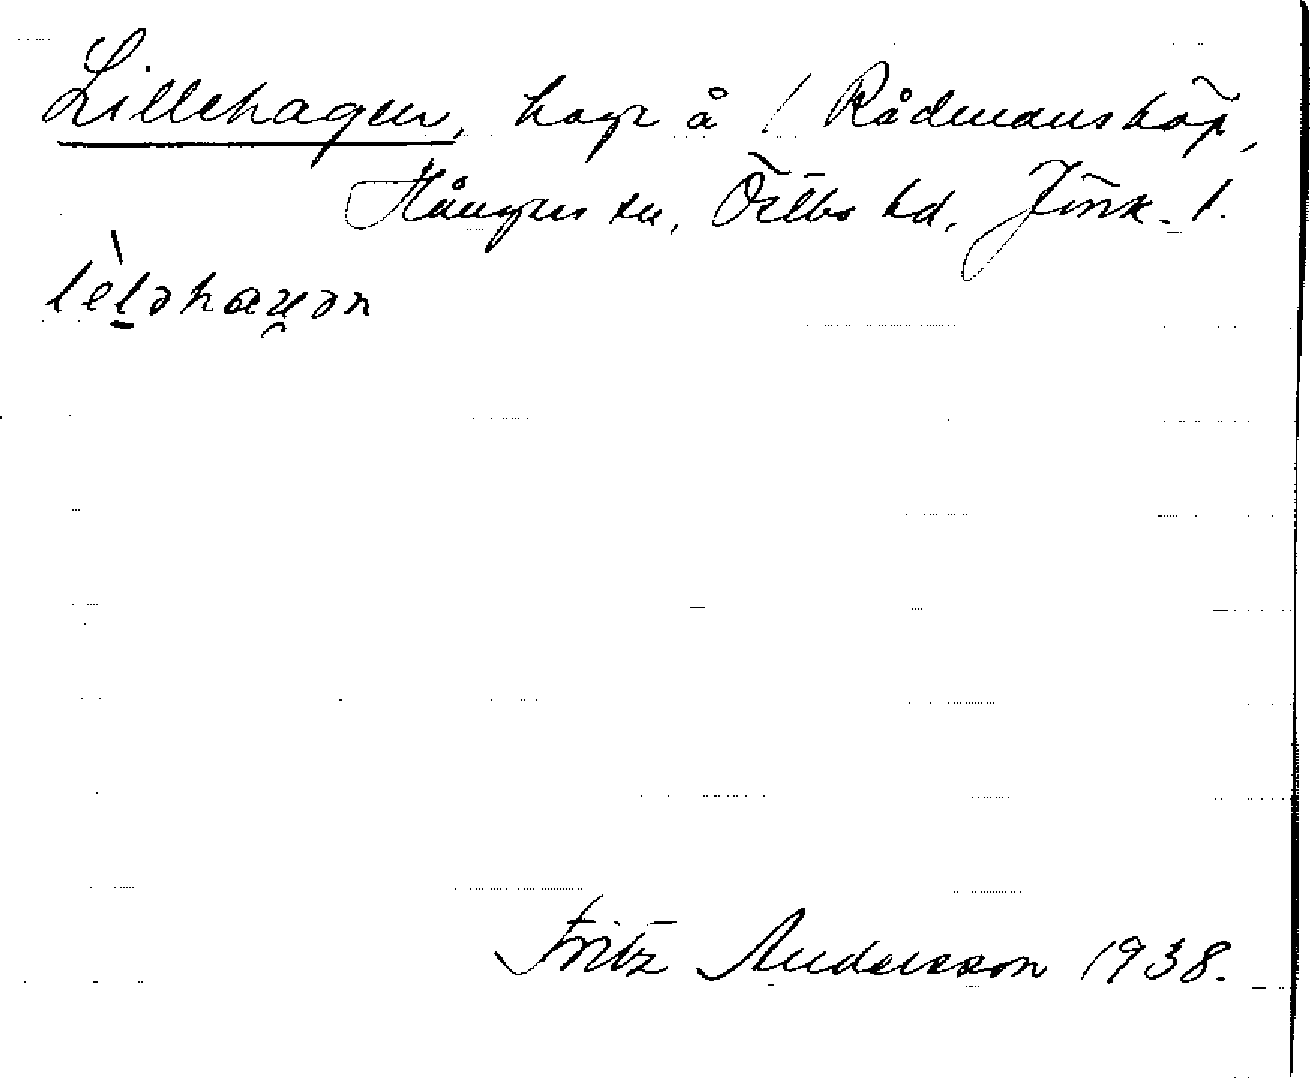 Lillehagen, hage å ⁄ Rådmansköp,
Hångers sn, Östbo hd, Jönk. l.
lèləhaɣən
Fritz Andersson 1938.